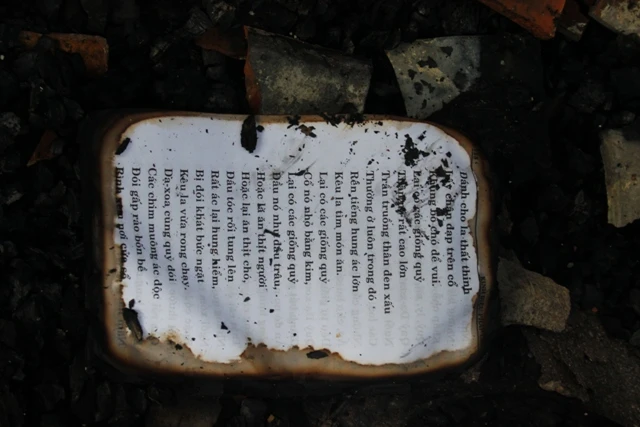 Đánh cho la thất thinh
chân đạp trên cổ
bố chó để vui.
Lại có các giống quỷ
rất cao lớn
Trần truồng thân đen xấu
Thường ở luôn trong đó
Rên tiếng hung ác lớn
Kêu la tìm món ăn.
Lại có các giống quỷ
Cổ nó nhỏ bằng kim,
Lại có các giống quỷ
Đầu nó như đầu trâu,
Hoặc là ăn thịt người
Hoặc lại ăn thịt chó,
Đầu tóc rối tung lên
Rất ác lại hung hiểm,
Bị đói khát bức ngặt
Kêu la vừa rong chạy.
Dạ-xoa cùng quỷ đói
Các chim muông ác độc
Đói gấp rảo bốn bề
Rình xem nơi cửa sổ,